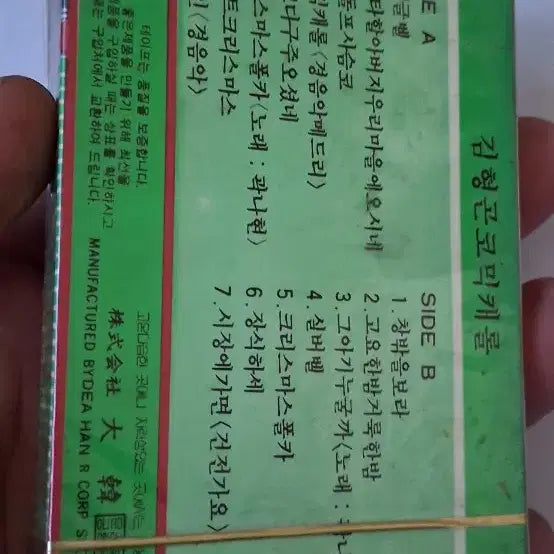 김형곤코믹캐롤
E A
글벨
다할아버지우리마을에오시네
돌프사슴코
캐롤〈경음악메드리〉
나구주오셨네
스마스폴카〈노래 : 곽나현〉
트크리스마스
인〈경음악〉
SIDE B
1. 창밖을보라
2. 고요한밤거룩한밤
3. 그아기누굴까〈노래 :
4. 실버벨
5. 크리스마스폴카
6. 장식하세
7. 시장에가면〈건전가요〉
테이프는 품질을 보증합니다.
좋은제품을 만들기 위해 최선을
품을 구입하실 때는 상표를 확인하시고
구입처에서 교환하여 드립니다.
株式会社 大 韓
MANUFACTURED BY DEA HAN R CORP S